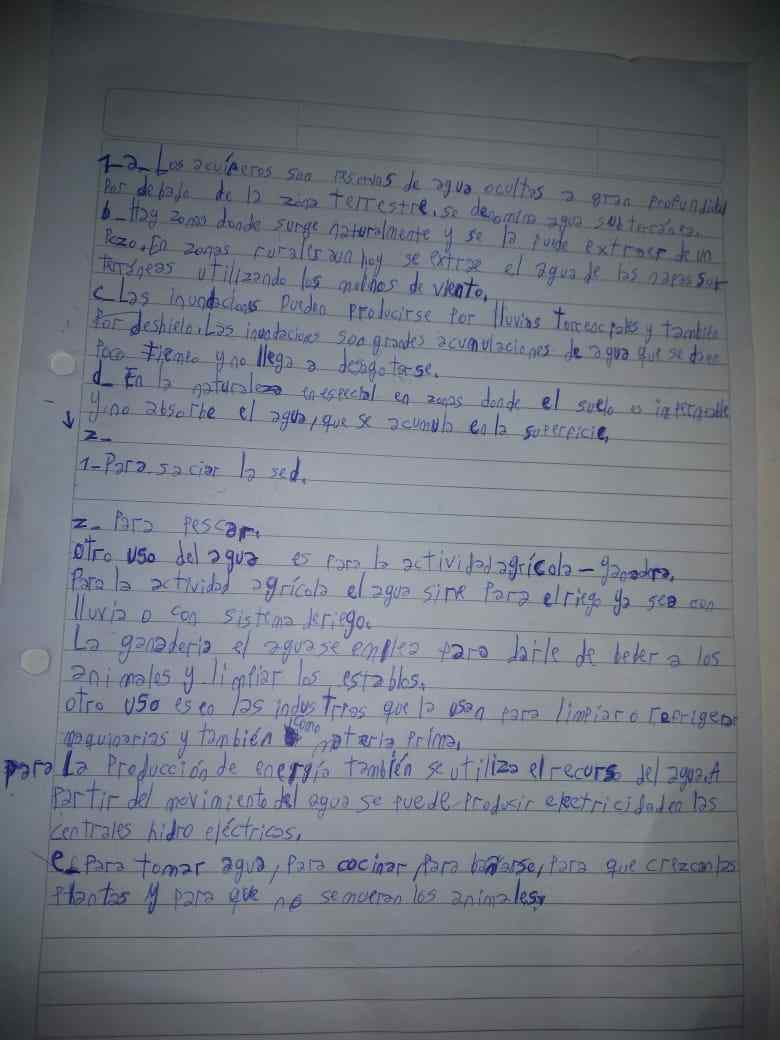 1-a_ Los acuíferos son reservas de agua ocultas a gran profundidad
Por debajo de la zona terrestre. se denomina agua subterránea.
b_ Hay zonas donde surge naturalmente y se la puede extraer de un
Pozo. En zonas rurales aun hoy se extrae el agua de las napas sub
terráneas utilizando los molinos de viento.
c_ Las inundaciones pueden producirse por lluvias torrenciales y también
Por deshielo. Las inundaciones son grandes acumulaciones de agua que se dan en
Poco tiempo y no llega a desagotarse.
d_ En la naturaleza en especial en zonas donde el suelo es impermeable
y no absorbe el agua, que se acumula en la superficie.
2-
1-Para saciar la sed.
2- Para pescar.
otro uso del agua es para la actividad agrícola-ganadera.
Para la actividad agrícola el agua sirve para el riego ya sea con
lluvia o con sistema de riego.
La ganadería el agua se emplea para darle de beber a los
animales y limpiar los establos.
otro uso es en las industrias que la usan para limpiar o refrigerar
maquinarias y también como materia prima.
para La Producción de energía también se utiliza el recurso del agua. A
partir del movimiento del agua se puede producir electricidad en las
centrales hidro eléctricas.
e_ Para tomar agua, para cocinar, para bañarse, para que crezcan las
plantas y para que no se mueran los animales.